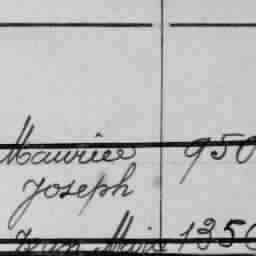 Maurice 950
Joseph
Jean Marie 1350